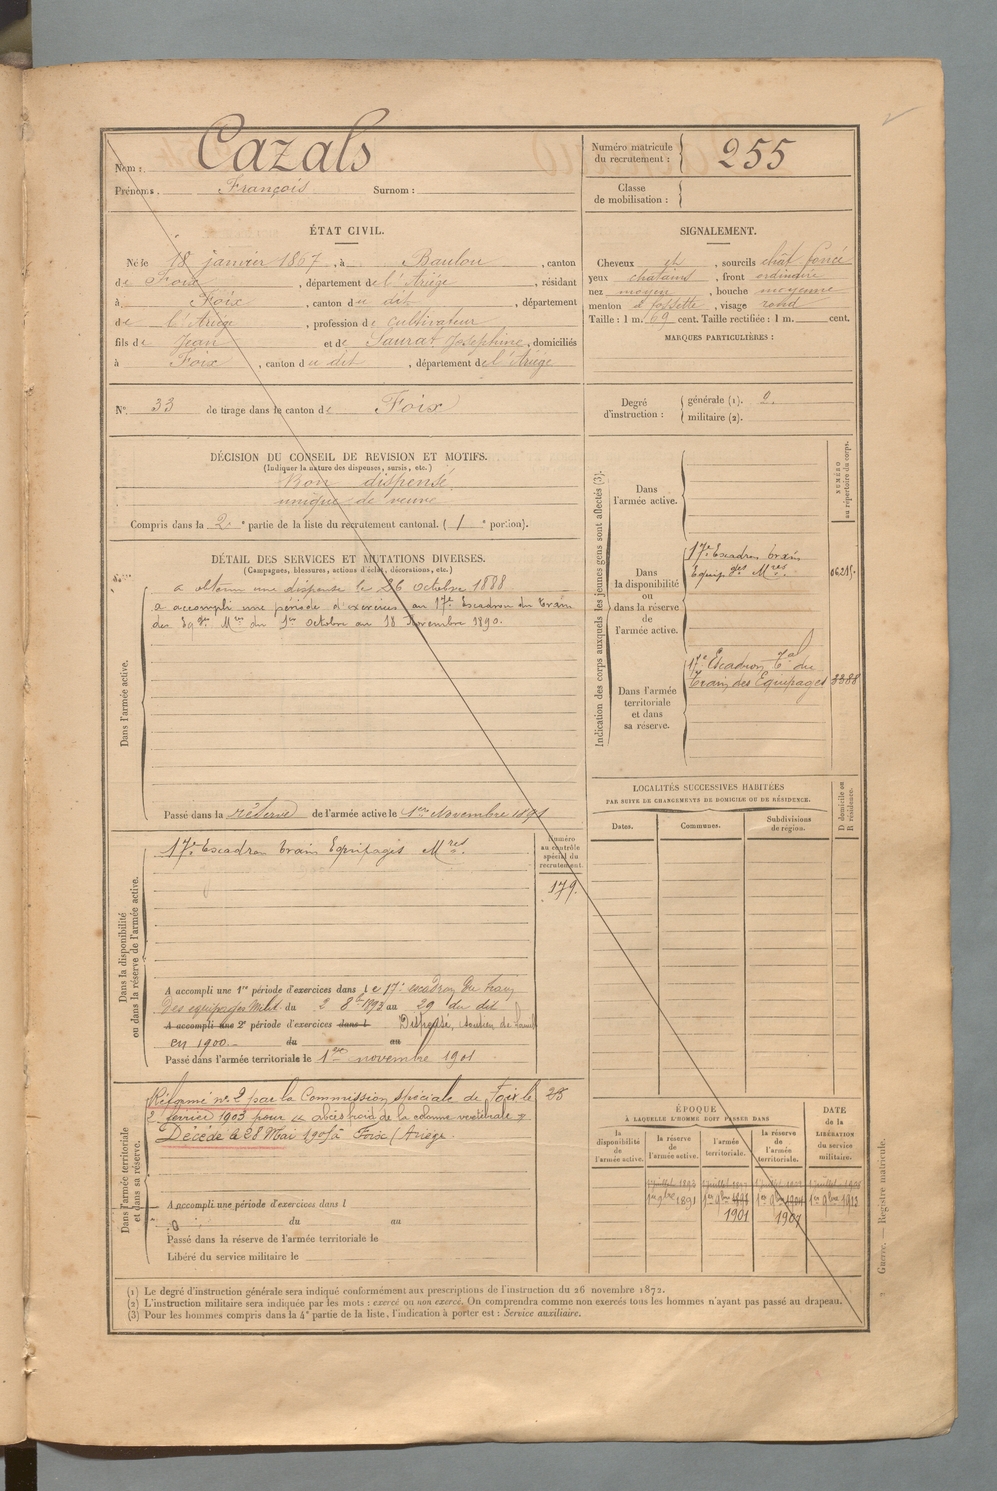 Nom : Cazals
Prénoms : François Surnom :
Numéro matricule du recrutement : 255
Classe de mobilisation :
ÉTAT CIVIL.
Né le 18 janvier 1867, à Baulou, canton
de Foix, département de l'Ariège, résidant
à Foix, canton du dit, département
de l'Ariège, profession de cultivateur
fils de Jean et de Saurat Josephine, domiciliés
à Foix, canton du dit, département de l'Ariège
SIGNALEMENT.
Cheveux et, sourcils chât foncé
yeux chatains, front ordinaire
nez moyen, bouche moyenne
menton à fossette, visage rond
Taille : 1 m. 69 cent. Taille rectifiée : 1 m. cent.
MARQUES PARTICULIÈRES :
N° 33 de tirage dans le canton de Foix
Degré d'instruction : générale (1). 2.
militaire (2).
DÉCISION DU CONSEIL DE REVISION ET MOTIFS.
(Indiquer la nature des dispenses, sursis, etc.)
Bon dispensé
unique de veuve
Compris dans la 2e partie de la liste du recrutement cantonal. (1e portion).
DÉTAIL DES SERVICES ET MUTATIONS DIVERSES.
(Campagnes, blessures, actions d'éclat, décorations, etc.)
Dans l'armée active.
a obtenu une dispense le 26 octobre 1888
a accompli une période d'exercices au 17e Escadron du train
des Eqges Mres du 1er Octobre au 18 Novembre 1890.
Passé dans la réserve de l'armée active le 1er Novembre 1891
Indication des corps auxquels les jeunes gens sont affectés (3).
NUMÉRO au répertoire du corps.
Dans l'armée active.
Dans la disponibilité ou dans la réserve de l'armée active.
17e Escadron train
Equipges Mres
Dans l'armée territoriale et dans sa réserve.
17e Escadron Tal du
Train des Equipages 3388
Dans la disponibilité ou dans la réserve de l'armée active.
17e Escadron train Equipages Mres.
Numéro au contrôle spécial du recrutement.
179.
A accompli une 1re période d'exercices dans le 17e escadron du train
des equipages milit du 2 8bre 1893 au 29 du dit
A accompli une 2e période d'exercices dans l Dispensé, soutien de famille
en 1900. du au
Passé dans l'armée territoriale le 1er novembre 1901
LOCALITÉS SUCCESSIVES HABITÉES
PAR SUITE DE CHANGEMENTS DE DOMICILE OU DE RÉSIDENCE.
Dates. Communes. Subdivisions de région. D domicile ou R résidence.
Dans l'armée territoriale et dans sa réserve.
Réformé n° 2 par la Commission spéciale de Foix le 28
2 février 1903 pour « abcès froid de la colonne vertébrale »
Décédé le 28 Mai 1905 à Foix (Ariège.
A accompli une période d'exercices dans l
du au
Passé dans la réserve de l'armée territoriale le
Libéré du service militaire le
ÉPOQUE
À LAQUELLE L'HOMME DOIT PASSER DANS
la disponibilité de l'armée active. la réserve de l'armée active. l'armée territoriale. la réserve de l'armée territoriale. DATE de la LIBÉRATION du service militaire.
1er 9bre 1891 1er 9bre 1901 1er 9bre 1907 1er 9bre 1913
Guerre. — Registre matricule.
(1) Le degré d'instruction générale sera indiqué conformément aux prescriptions de l'instruction du 26 novembre 1872.
(2) L'instruction militaire sera indiquée par les mots : exercé ou non exercé. On comprendra comme non exercés tous les hommes n'ayant pas passé au drapeau.
(3) Pour les hommes compris dans la 4e partie de la liste, l'indication à porter est : Service auxiliaire.